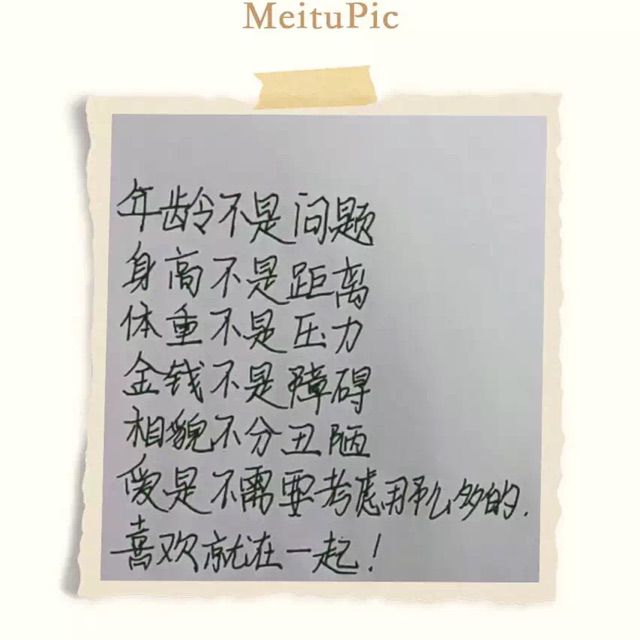 MeituPic
年龄不是问题
身高不是距离
体重不是压力
金钱不是障碍
相貌不分丑陋
爱是不需要考虑那么多的.
喜欢就在一起!